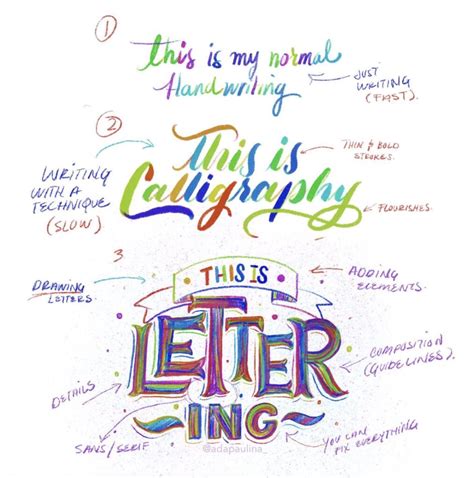 1
this is my normal
Handwriting
JUST
WRITING
(FAST).
2
This is
Calligraphy
WRITING
WITH A
TECHNIQUE
(SLOW)
THIN & BOLD
STROKES.
FLOURISHES.
3
THIS IS
LETTER
ING
DRAWING
LETTERS.
ADDING
ELEMENTS.
COMPOSITION
(GUIDELINES).
DETAILS
SANS/SERIF
YOU CAN
FIX EVERYTHING
@adapaulina_